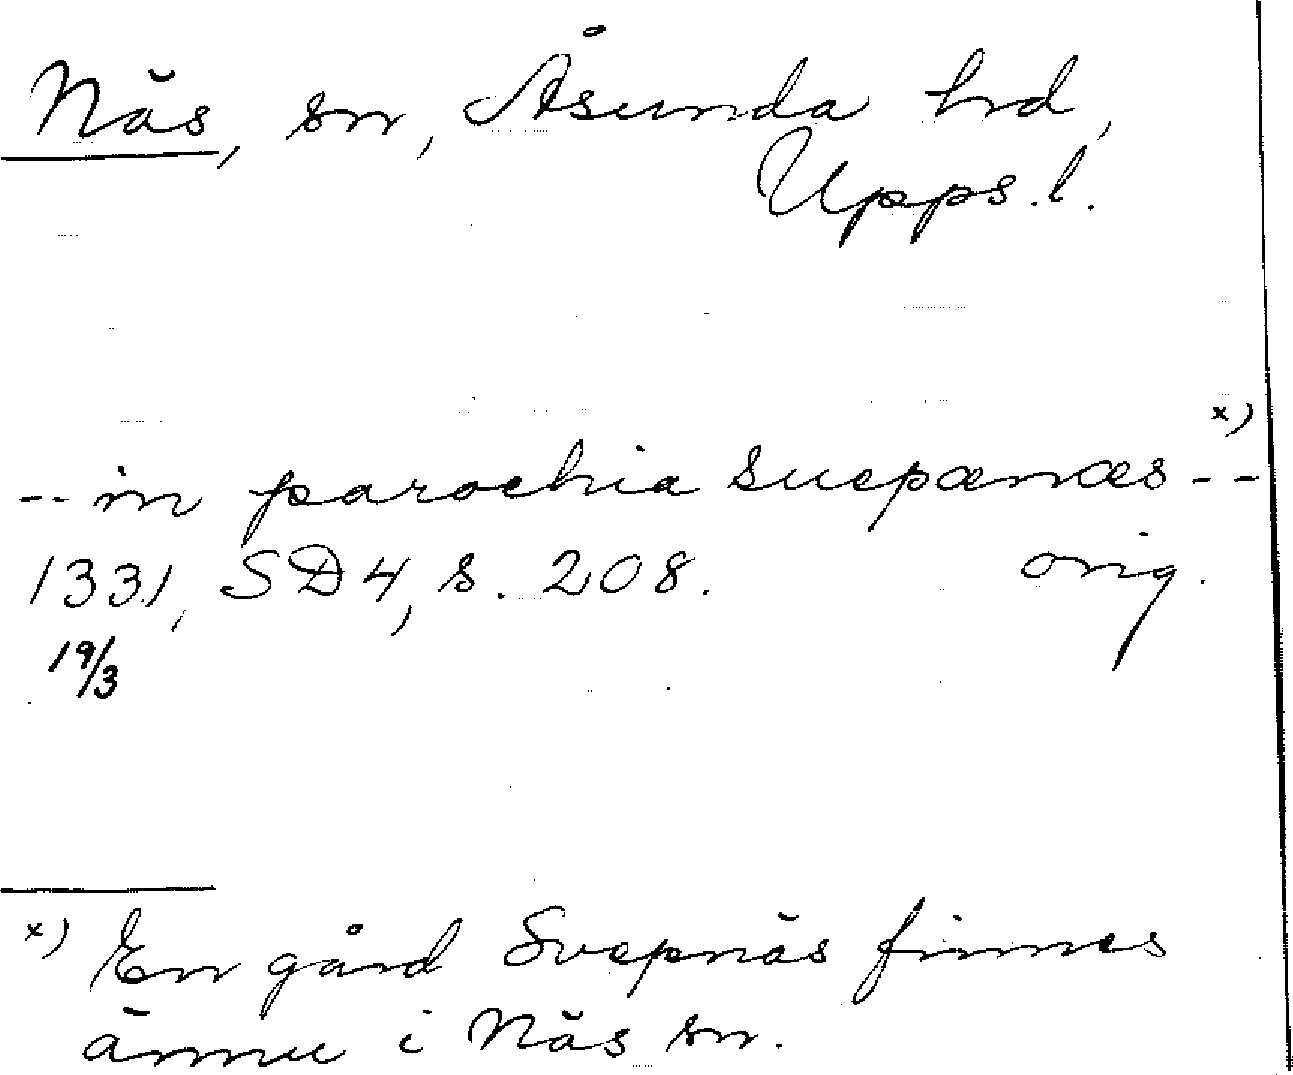 Näs, sn, Åsunda hd,
Upps. l.
-- in parochia suepænæs -- x)
1331, SD 4, s. 208. orig.
19/3
x) En gård Svepnäs finnes
ännu i Näs sn.